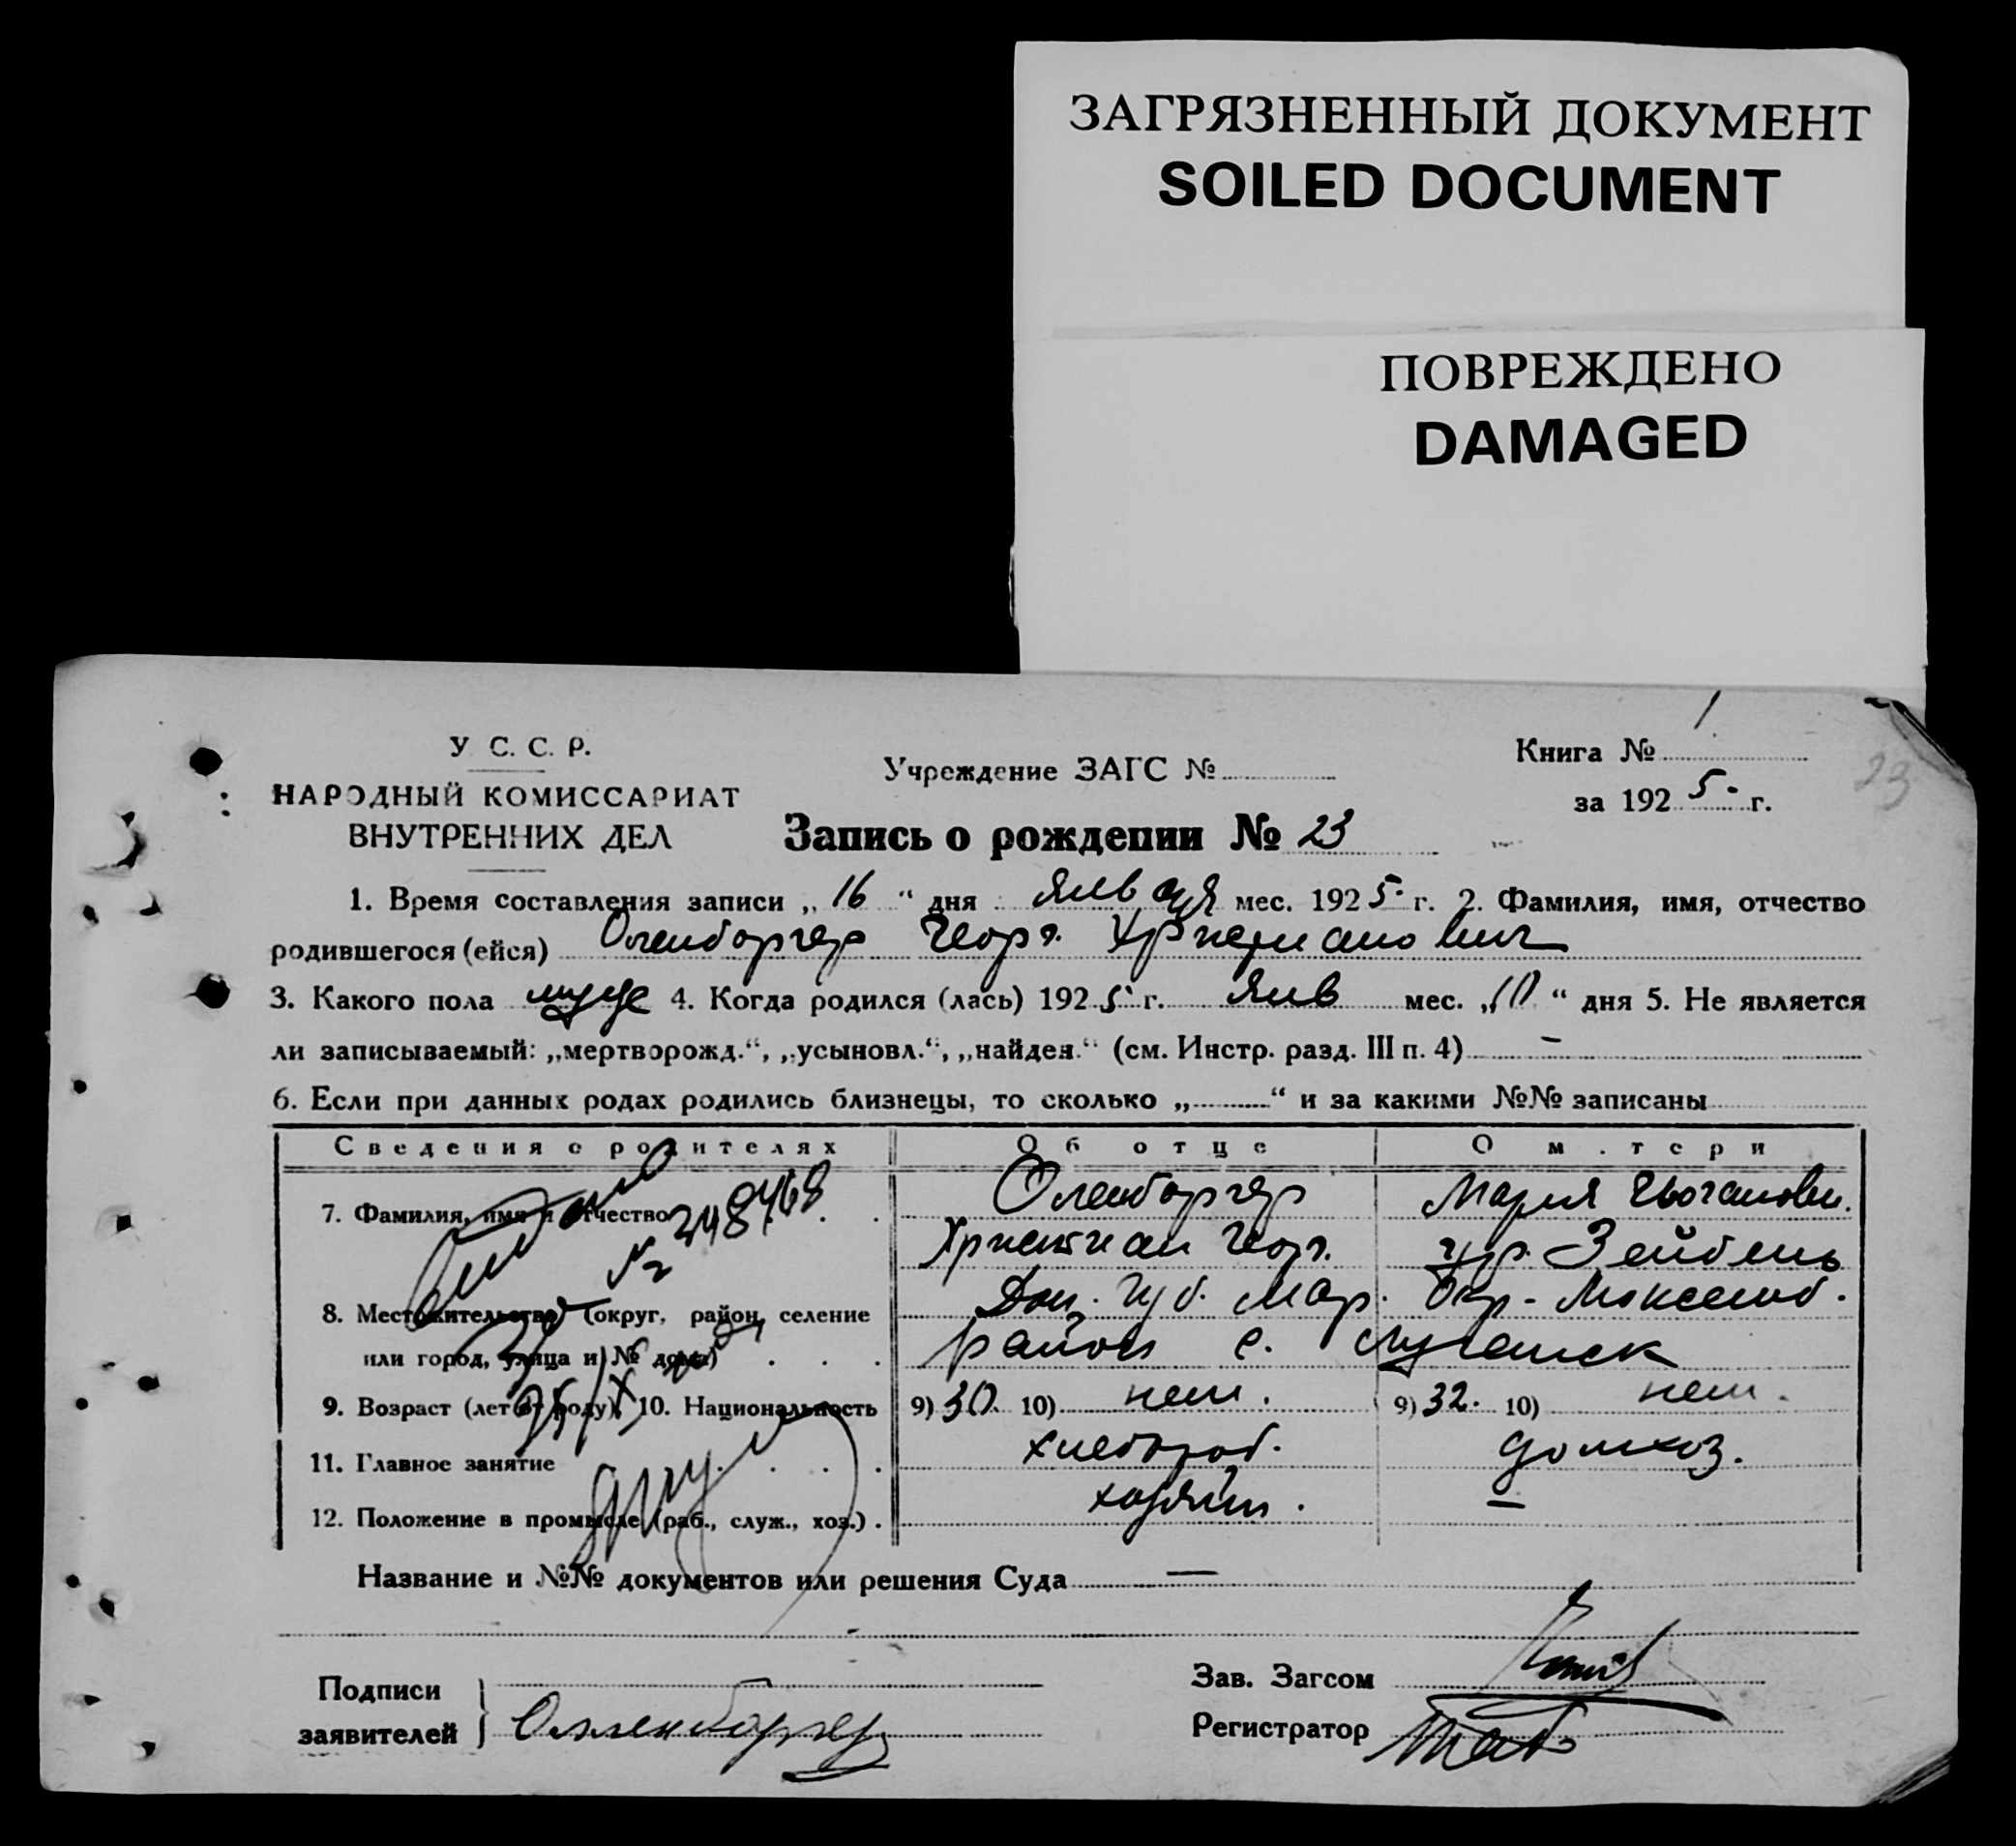 ЗАГРЯЗНЕННЫЙ ДОКУМЕНТ
SOILED DOCUMENT
ПОВРЕЖДЕНО
DAMAGED
У С. С. Р.
НАРОДНЫЙ КОМИССАРИАТ
ВНУТРЕННИХ ДЕЛ
Учреждение ЗАГС №
Книга № 1
за 1925 г.
23
Запись о рождении № 23
1. Время составления записи „16“ дня января мес. 1925 г. 2. Фамилия, имя, отчество
родившегося (ейся) Оленборгер Георг Христианович
3. Какого пола муж 4. Когда родился (лась) 1925 г. янв мес. „10“ дня 5. Не является
ли записываемый: „мертворожд.“, „усыновл.“, „найден.“ (см. Инстр. разд. III п. 4) –
6. Если при данных родах родились близнецы, то сколько „ “ и за какими №№ записаны
Сведения о родителях Об отце О матери
7. Фамилия, имя и отчество Оленборгер Мария
№ 248468
Христиан Геор. ур. Зейбель
8. Местожительство (округ, район, селение Дон. Губ. Мар. Окр-
или город, улица и № дома) район с.
9. Возраст (лет от роду) 10. Национальность 9) 30 10) нем. 9) 32. 10) нем.
11. Главное занятие хлебороб. домхоз.
12. Положение в промысле (раб., служ., хоз.) хозяин. –
Название и №№ документов или решения Суда —
Подписи
заявителей Олленборгер
Зав. Загсом
Регистратор